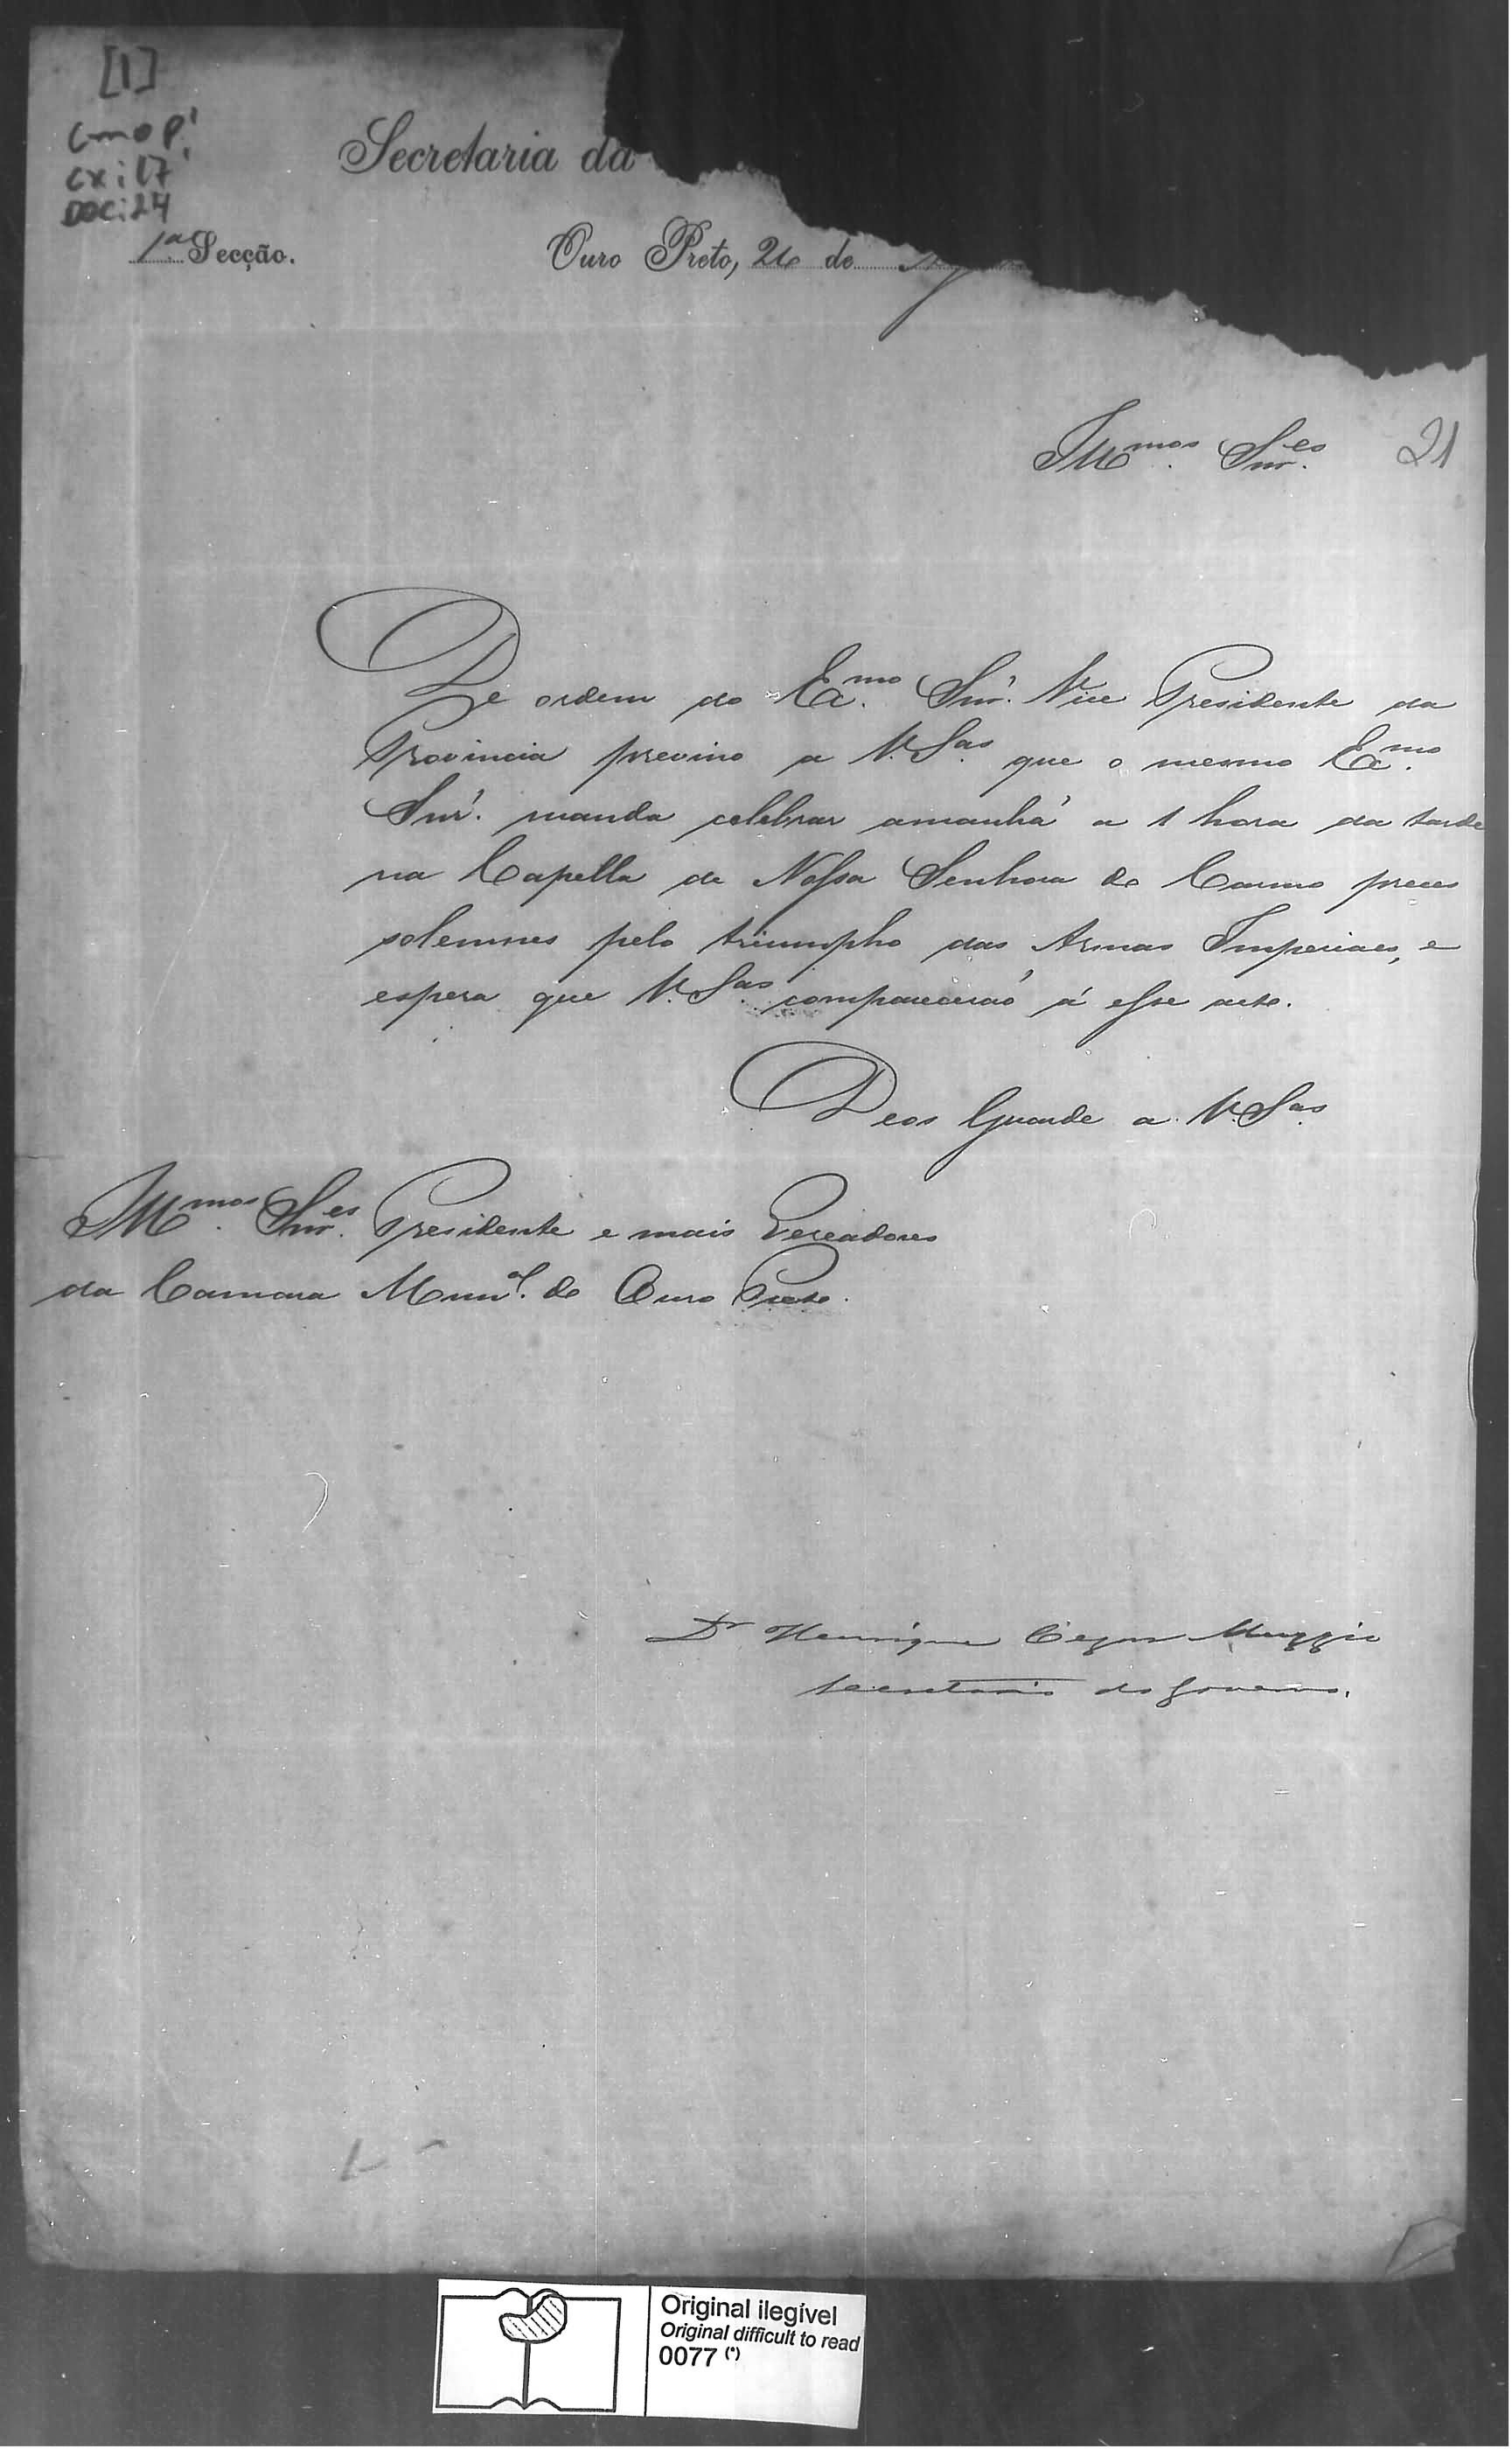 [1]
CMOP
CX: 17
DOC: 24
Secretaria da
1.ª Secção.
Ouro Preto, 26 de
Illmos. Snres.
21
De ordem do Exmo. Snr. Vice Presidente da
Provincia previno a V. Sas. que o mesmo Exmo.
Snr. manda celebrar amanhã a 1 hora da tarde
na Capella de Nossa Senhora do Carmo preces
solemnes pelo triumpho das Armas Imperiaes, e
espera que V. Sas. comparecerão á esse acto.
Deos Guarde a V. Sas.
Illmos. Snres. Presidente e mais Vereadores
da Camara Munal. de Ouro Preto.
Dr Henrique Cezar Muzzio
Secretario do Governo.
Original ilegível
Original difficult to read
0077 (*)